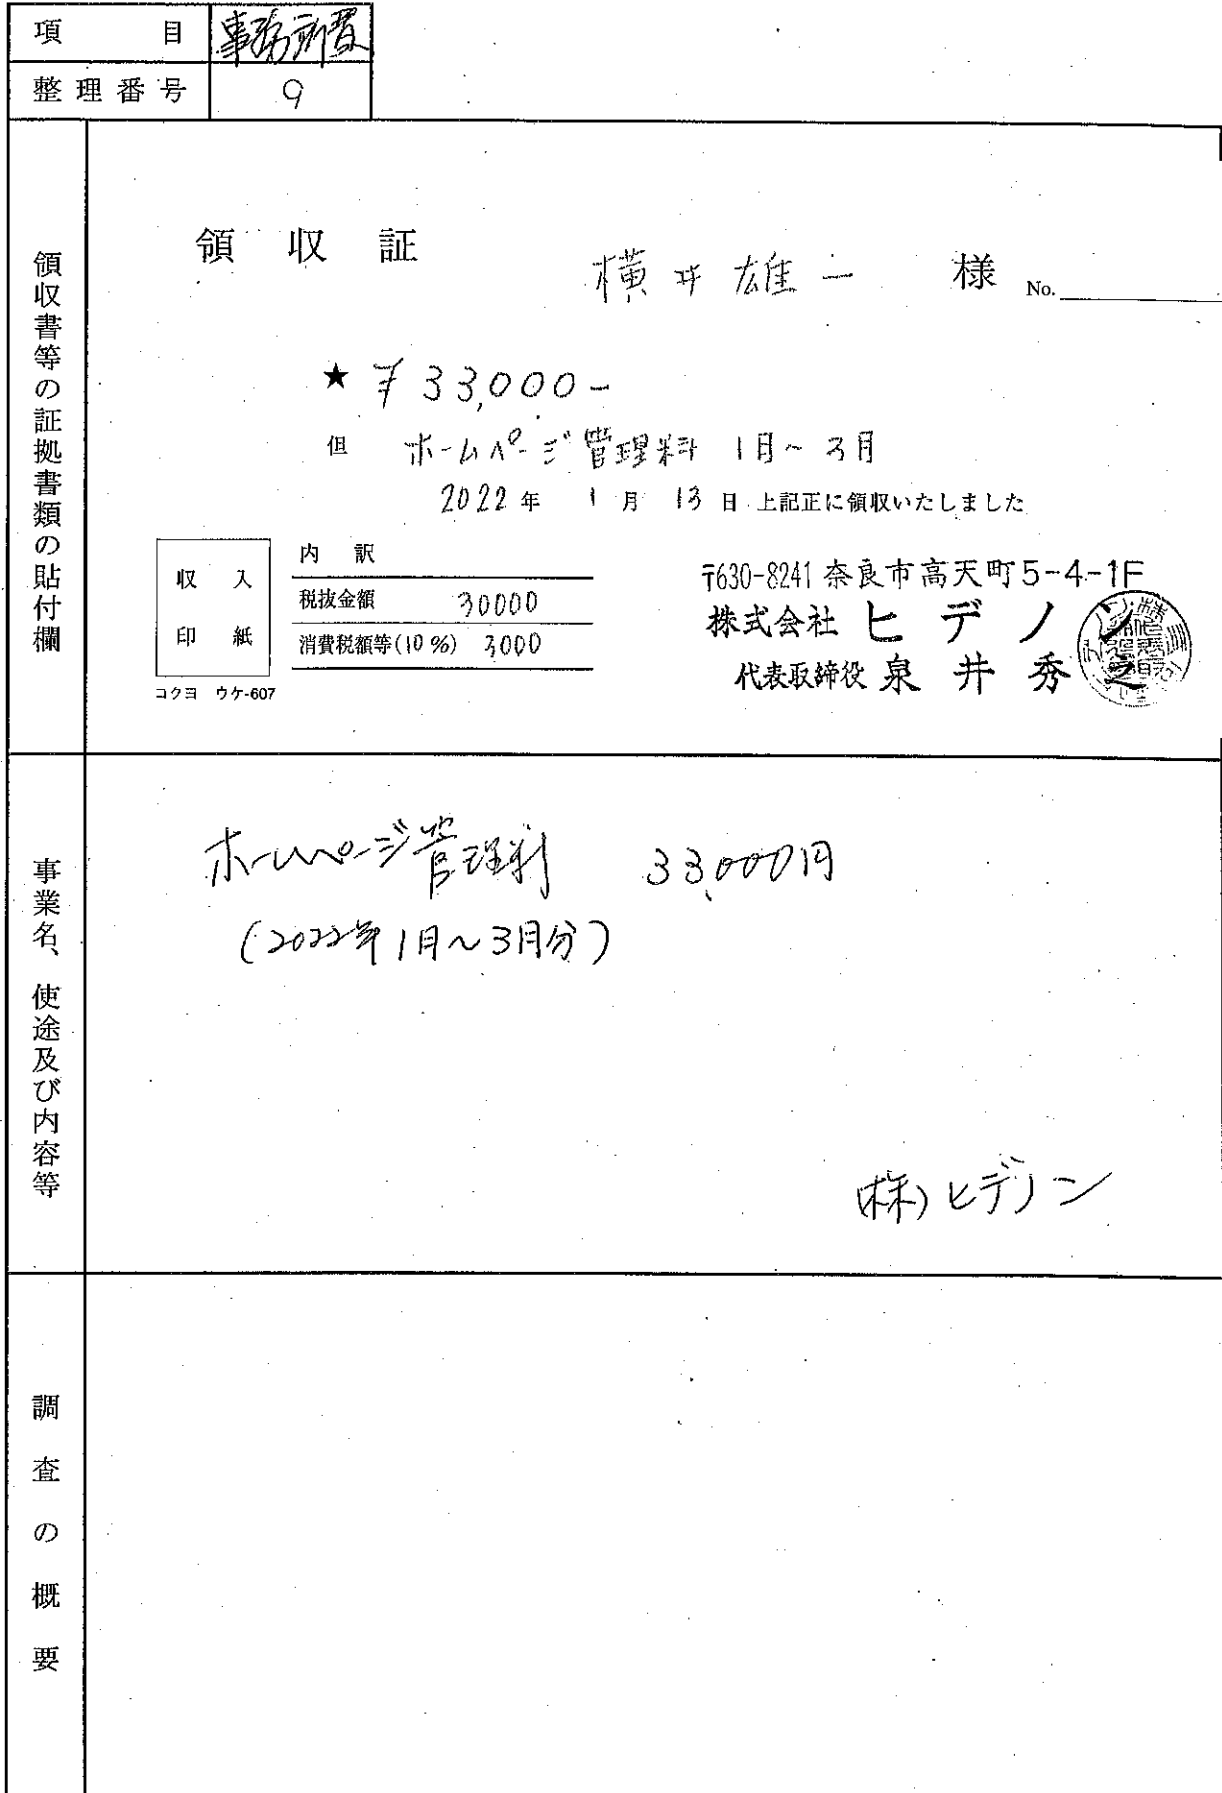 項目 事務所費
整理番号 9
領収書等の証拠書類の貼付欄
領収証
横井雄一 様 No.
★ ¥33,000-
但 ホームページ管理料 1月~3月
2022年 1月 13日 上記正に領収いたしました
収入
印紙
コクヨ ウケ-607
内訳
税抜金額 30000
消費税額等(10%) 3000
〒630-8241 奈良市高天町5-4-1F
株式会社 ヒデノン
代表取締役 泉井秀之
事業名、使途及び内容等
ホームページ管理料 33,000円
(2022年1月~3月分)
(株)ヒデノン
調査の概要